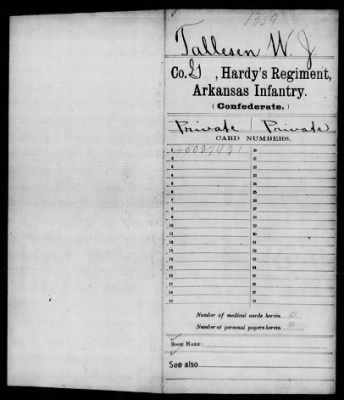 1359
Tallesen W. J.
Co. G, Hardy's Regiment,
Arkansas Infantry.
(Confederate.)
Private Private
CARD NUMBERS.
1 20
2 21
3 22
4 23
5 24
6 25
7 26
8 27
9 28
10 29
11 30
12 31
13 32
14 33
15 34
16 35
17 36
18 37
19 38
Number of medical cards herein 0
Number of personal papers herein 0
BOOK MARK:
See also